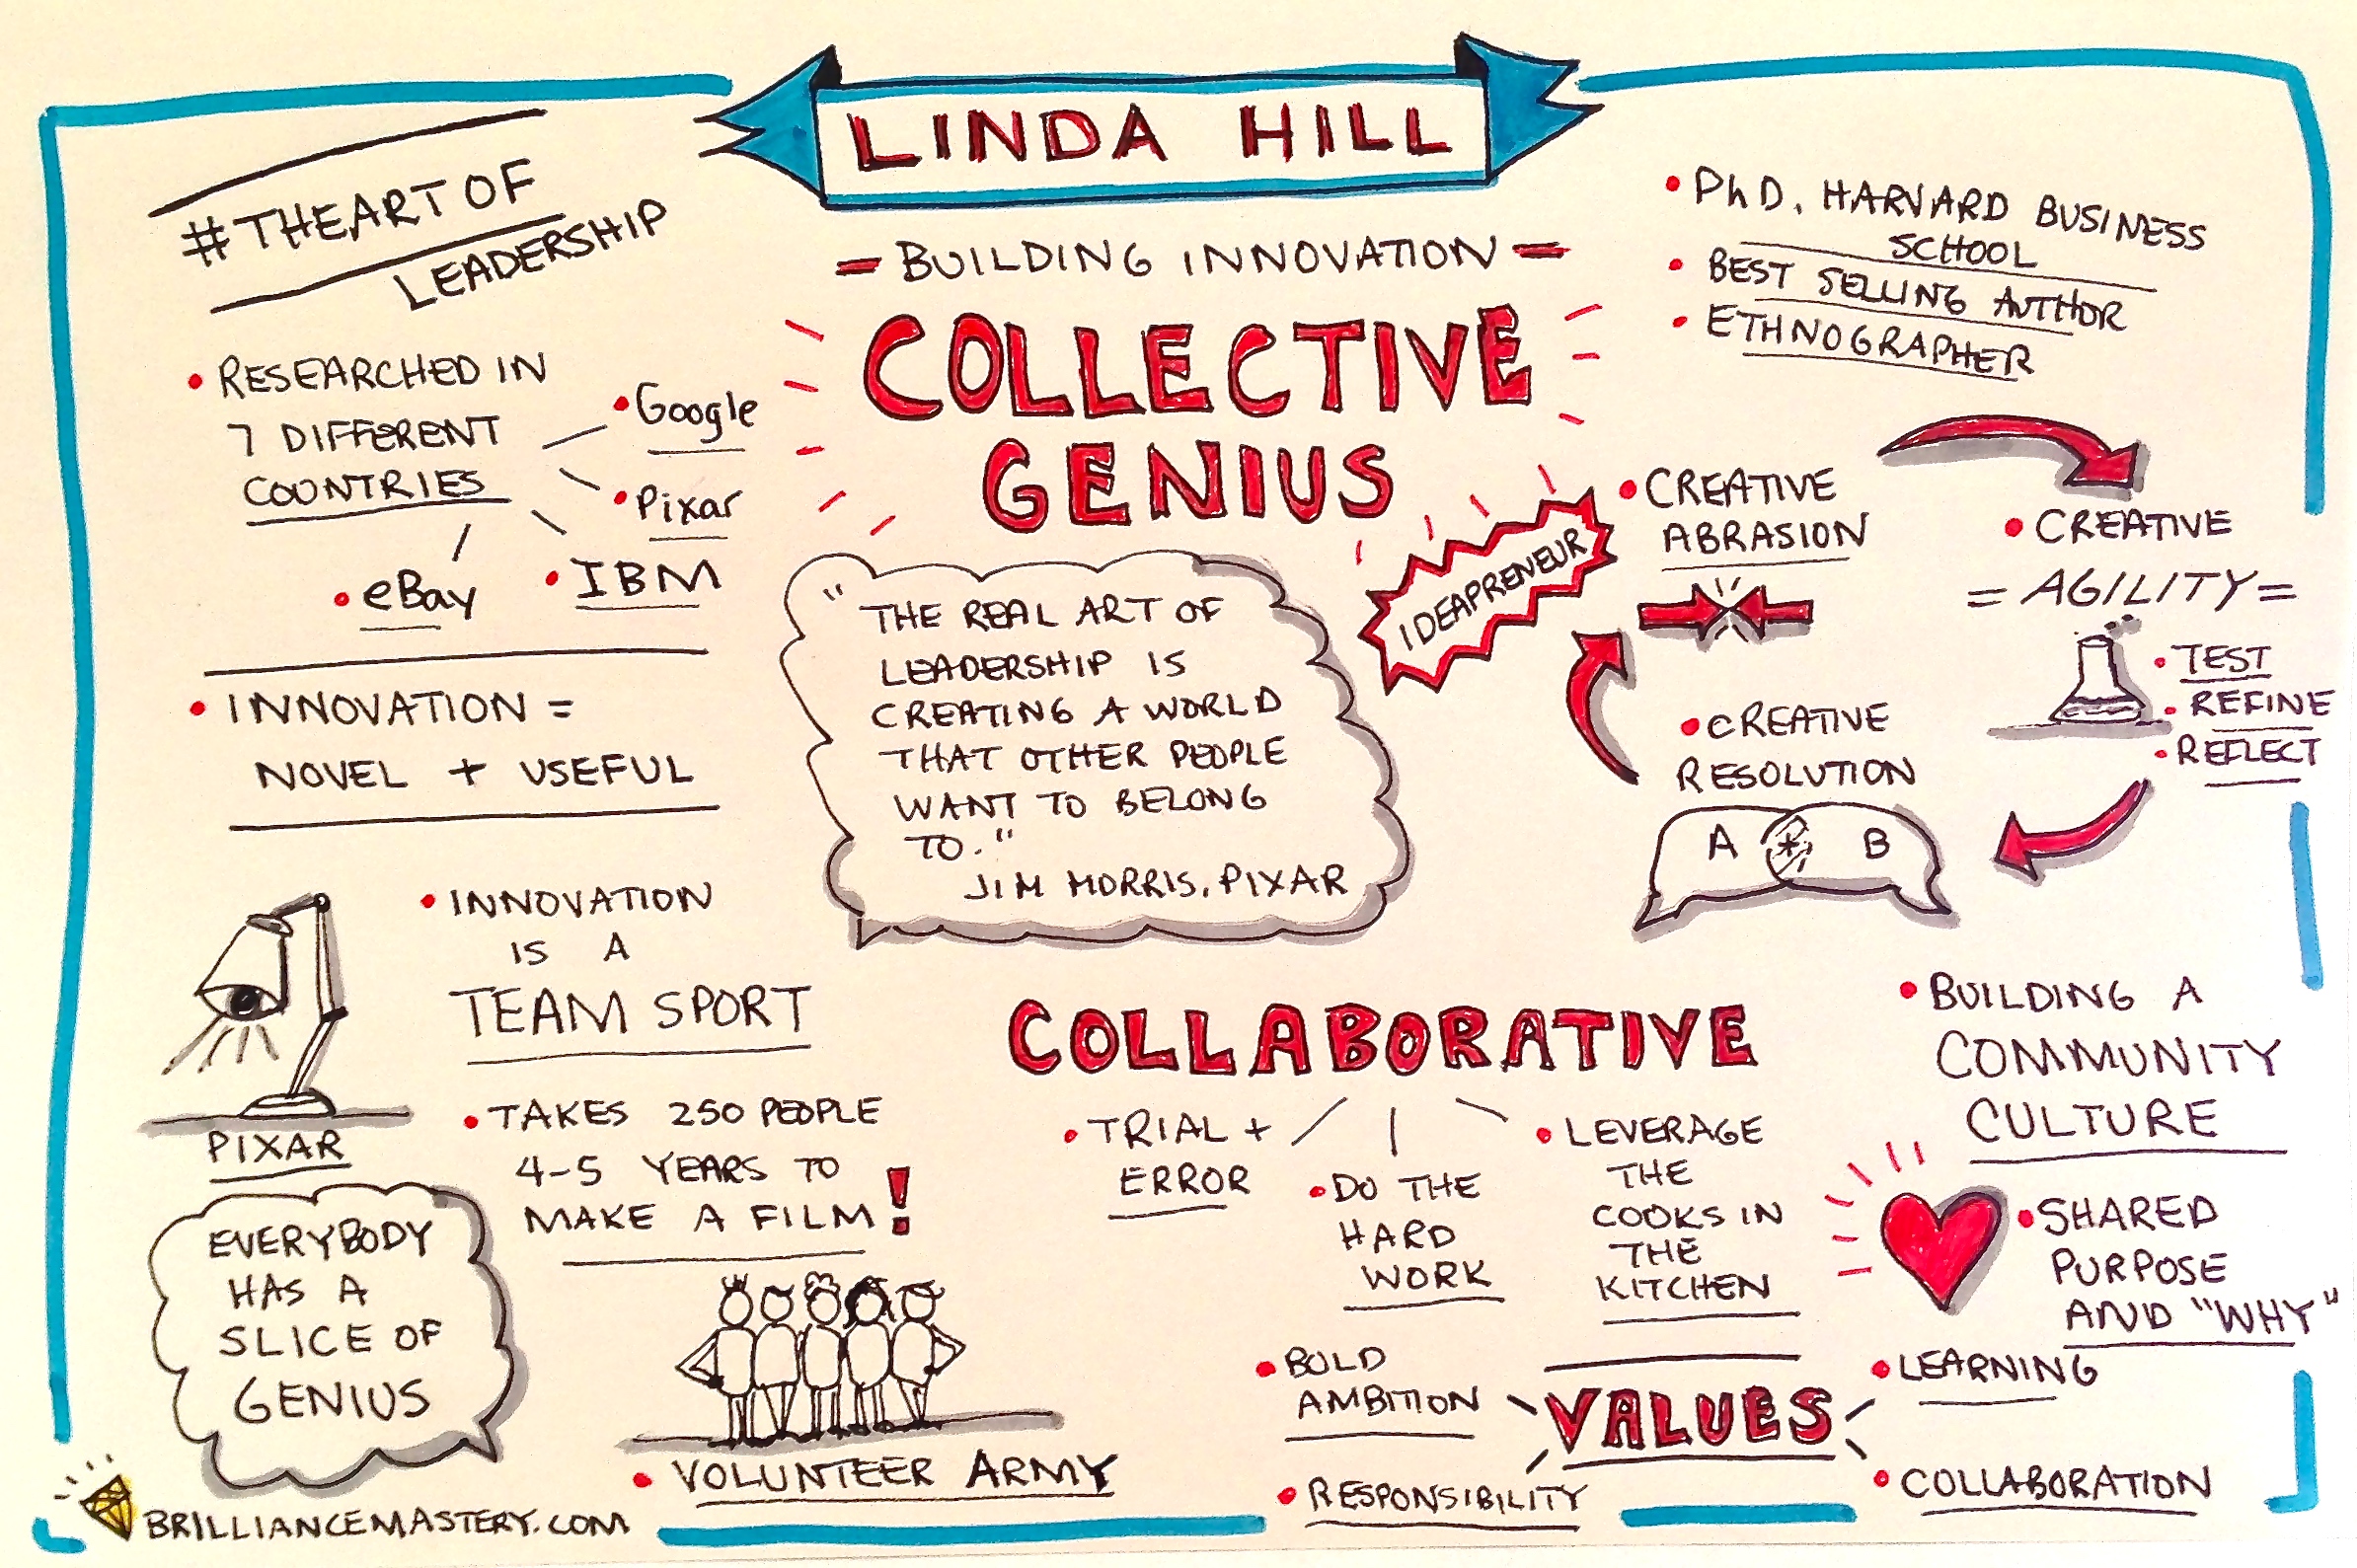 LINDA HILL
#THEART OF
LEADERSHIP
- BUILDING INNOVATION -
COLLECTIVE
GENIUS
• PhD, HARVARD BUSINESS
SCHOOL
• BEST SELLING AUTHOR
• ETHNOGRAPHER
• RESEARCHED IN
7 DIFFERENT
COUNTRIES
• Google
• Pixar
• IBM
• eBay
• INNOVATION =
NOVEL + USEFUL
"THE REAL ART OF
LEADERSHIP IS
CREATING A WORLD
THAT OTHER PEOPLE
WANT TO BELONG
TO."
JIM MORRIS, PIXAR
IDEAPRENEUR
• CREATIVE
ABRASION
• CREATIVE
= AGILITY =
• TEST
• REFINE
• REFLECT
• CREATIVE
RESOLUTION
A * B
• INNOVATION
IS A
TEAM SPORT
PIXAR
• TAKES 250 PEOPLE
4-5 YEARS TO
MAKE A FILM!
EVERYBODY
HAS A
SLICE OF
GENIUS
• VOLUNTEER ARMY
COLLABORATIVE
• TRIAL +
ERROR
• DO THE
HARD
WORK
• LEVERAGE
THE
COOKS IN
THE
KITCHEN
• BUILDING A
COMMUNITY
CULTURE
• SHARED
PURPOSE
AND "WHY"
VALUES
• BOLD
AMBITION
• RESPONSIBILITY
• LEARNING
• COLLABORATION
BRILLIANCEMASTERY.COM